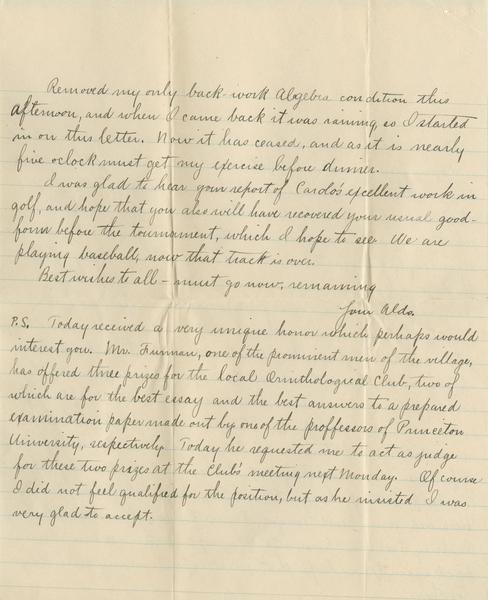 Removed my only back-work Algebra condition this
afternoon, and when I came back it was raining, so I started
in on this letter. Now it has ceased, and as it is nearly
five oclock must get my exercise before dinner.
I was glad to hear your report of Carolo's excellent work in
golf, and hope that you also will have recovered your usual good-
form before the tournament, which I hope to see. We are
playing baseball, now that track is over.
Best wishes to all - must go now, remaining
Your Aldo.
P.S. Today received a very unique honor which perhaps would
interest you. Mr. Furman, one of the prominent men of the village,
has offered three prizes for the local Ornithological Club, two of
which are for the best essay and the best answers to a prepared
examination paper made out by one of the proffessors of Princeton
University, respectively. Today he requested me to act as judge
for these two prizes at the Club's meeting next Monday. Of course
I did not feel qualified for the position, but as he insisted I was
very glad to accept.